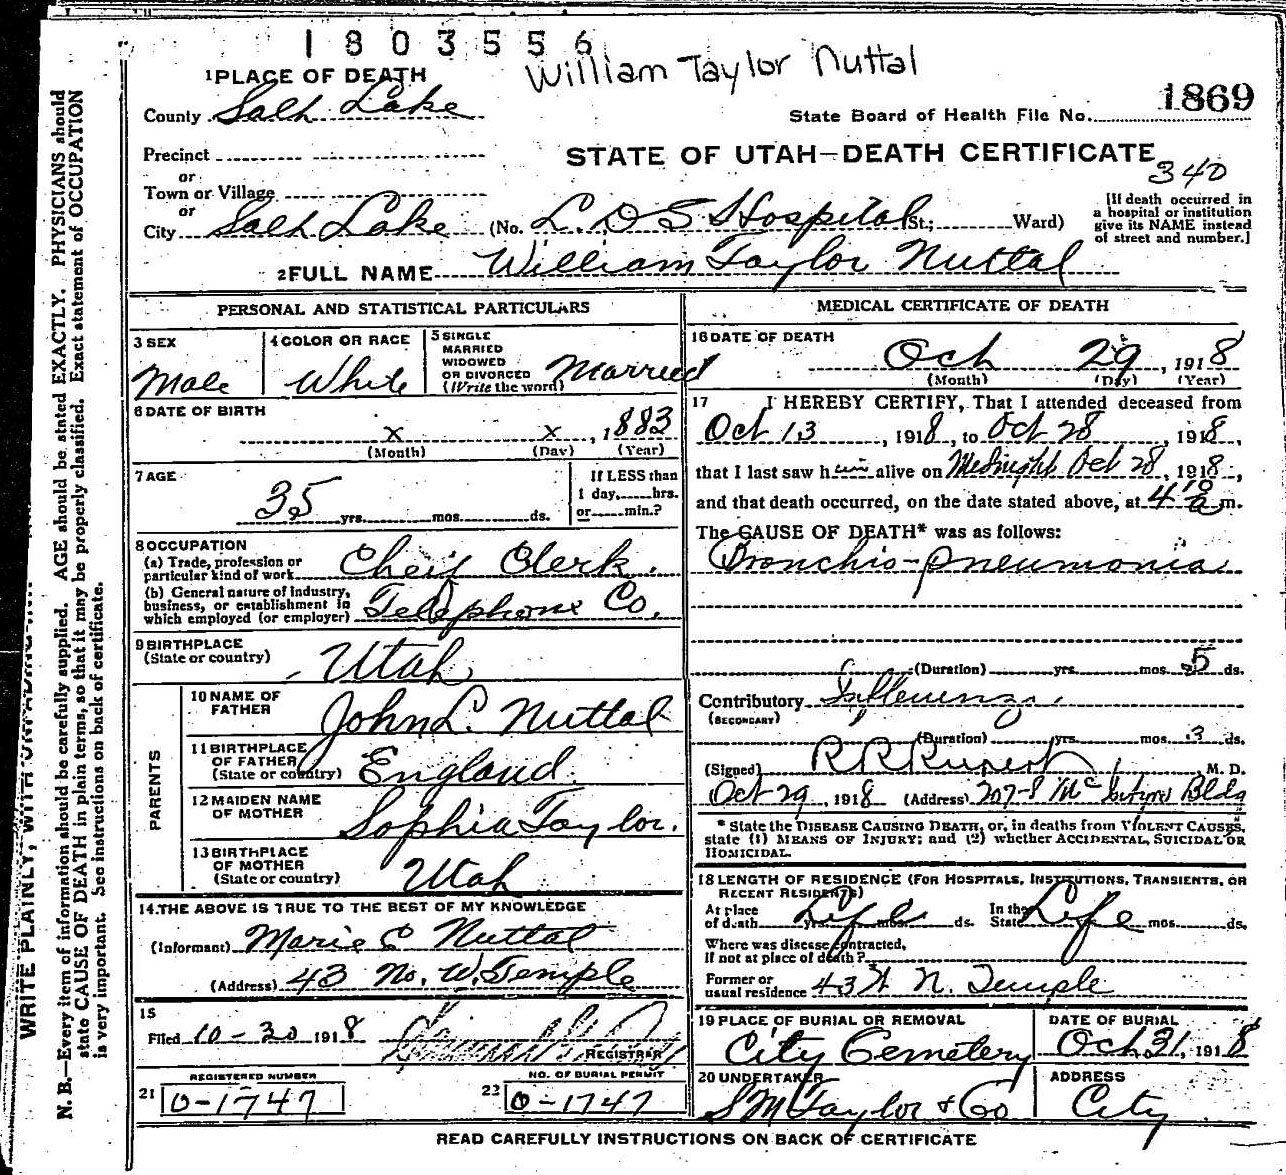 1803556
William Taylor Nuttal
1 PLACE OF DEATH
County Salt Lake
State Board of Health File No. 1869
Precinct
STATE OF UTAH—DEATH CERTIFICATE
340
or
Town or Village
or
City Salt Lake (No. L.D.S Hospital St; Ward)
[If death occurred in
a hospital or institution
give its NAME instead
of street and number.]
2 FULL NAME William Taylor Nuttal
PERSONAL AND STATISTICAL PARTICULARS
3 SEX
Male
4 COLOR OR RACE
White
5 SINGLE
MARRIED
WIDOWED
OR DIVORCED
(Write the word) Married
6 DATE OF BIRTH
x x, 1883
(Month) (Day) (Year)
7 AGE
35 yrs. mos. ds.
If LESS than
1 day, hrs.
or min.?
8 OCCUPATION
(a) Trade, profession or
particular kind of work Cheif Clerk.
(b) General nature of Industry,
business, or establishment in
which employed (or employer) Telephone Co.
9 BIRTHPLACE
(State or country) Utah
PARENTS
10 NAME OF
FATHER John L. Nuttal
11 BIRTHPLACE
OF FATHER
(State or country) England.
12 MAIDEN NAME
OF MOTHER Sophia Taylor.
13 BIRTHPLACE
OF MOTHER
(State or country) Utah
14. THE ABOVE IS TRUE TO THE BEST OF MY KNOWLEDGE
(Informant) Marie C Nuttal
(Address) 43 No. W. Temple
15
Filed 10-30 1918
REGISTRAR
REGISTERED NUMBER
21 0-1747
NO. OF BURIAL PERMIT
22 0-1747
MEDICAL CERTIFICATE OF DEATH
16 DATE OF DEATH
Oct 29, 1918
(Month) (Day) (Year)
17 I HEREBY CERTIFY, That I attended deceased from
Oct 13, 1918, to Oct 28, 1918,
that I last saw him alive on Midnight Oct 28, 1918,
and that death occurred, on the date stated above, at 4 10 a m.
The CAUSE OF DEATH* was as follows:
Bronchio-pneumonia
(Duration) yrs. mos. 5 ds.
Contributory Influenza.
(SECONDARY)
(Duration) yrs. mos. 3 ds.
(Signed) R R Rupert M. D.
Oct 29, 1918 (Address) 207-8 McIntyre Bldg
* State the DISEASE CAUSING DEATH, or, in deaths from VIOLENT CAUSES,
state (1) MEANS OF INJURY; and (2) whether ACCIDENTAL, SUICIDAL OR
HOMICIDAL.
18 LENGTH OF RESIDENCE (FOR HOSPITALS, INSTITUTIONS, TRANSIENTS, OR
RECENT RESIDENTS)
At place
of death Life yrs. mos. ds. In the
State Life mos. ds.
Where was disease contracted,
if not at place of death?
Former or
usual residence 43 W N. Temple
19 PLACE OF BURIAL OR REMOVAL
City Cemetery
DATE OF BURIAL
Oct 31, 1918
20 UNDERTAKER
S M Taylor & Co
ADDRESS
City
READ CAREFULLY INSTRUCTIONS ON BACK OF CERTIFICATE
N. B.—Every item of information should be carefully supplied. AGE should be stated EXACTLY. PHYSICIANS should
state CAUSE OF DEATH in plain terms, so that it may be properly classified. Exact statement of OCCUPATION
is very important. See instructions on back of certificate.
WRITE PLAINLY, WITH